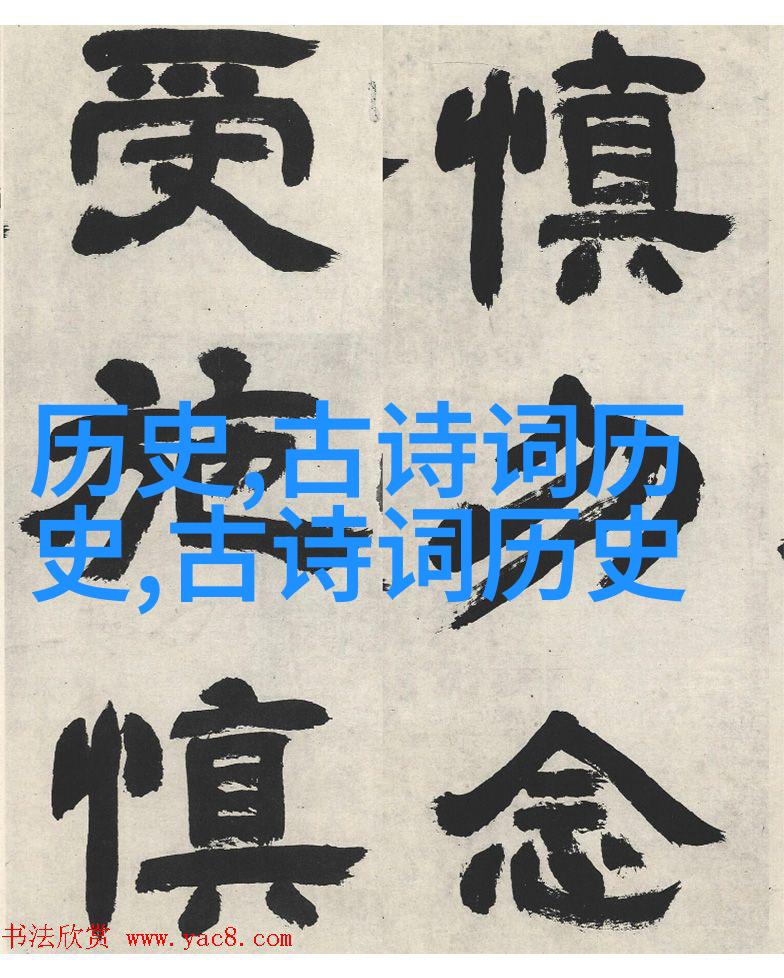 慎勿念
受施慎
历史,古诗词历
史,古诗词历史
书法欣赏 www.yac8.com